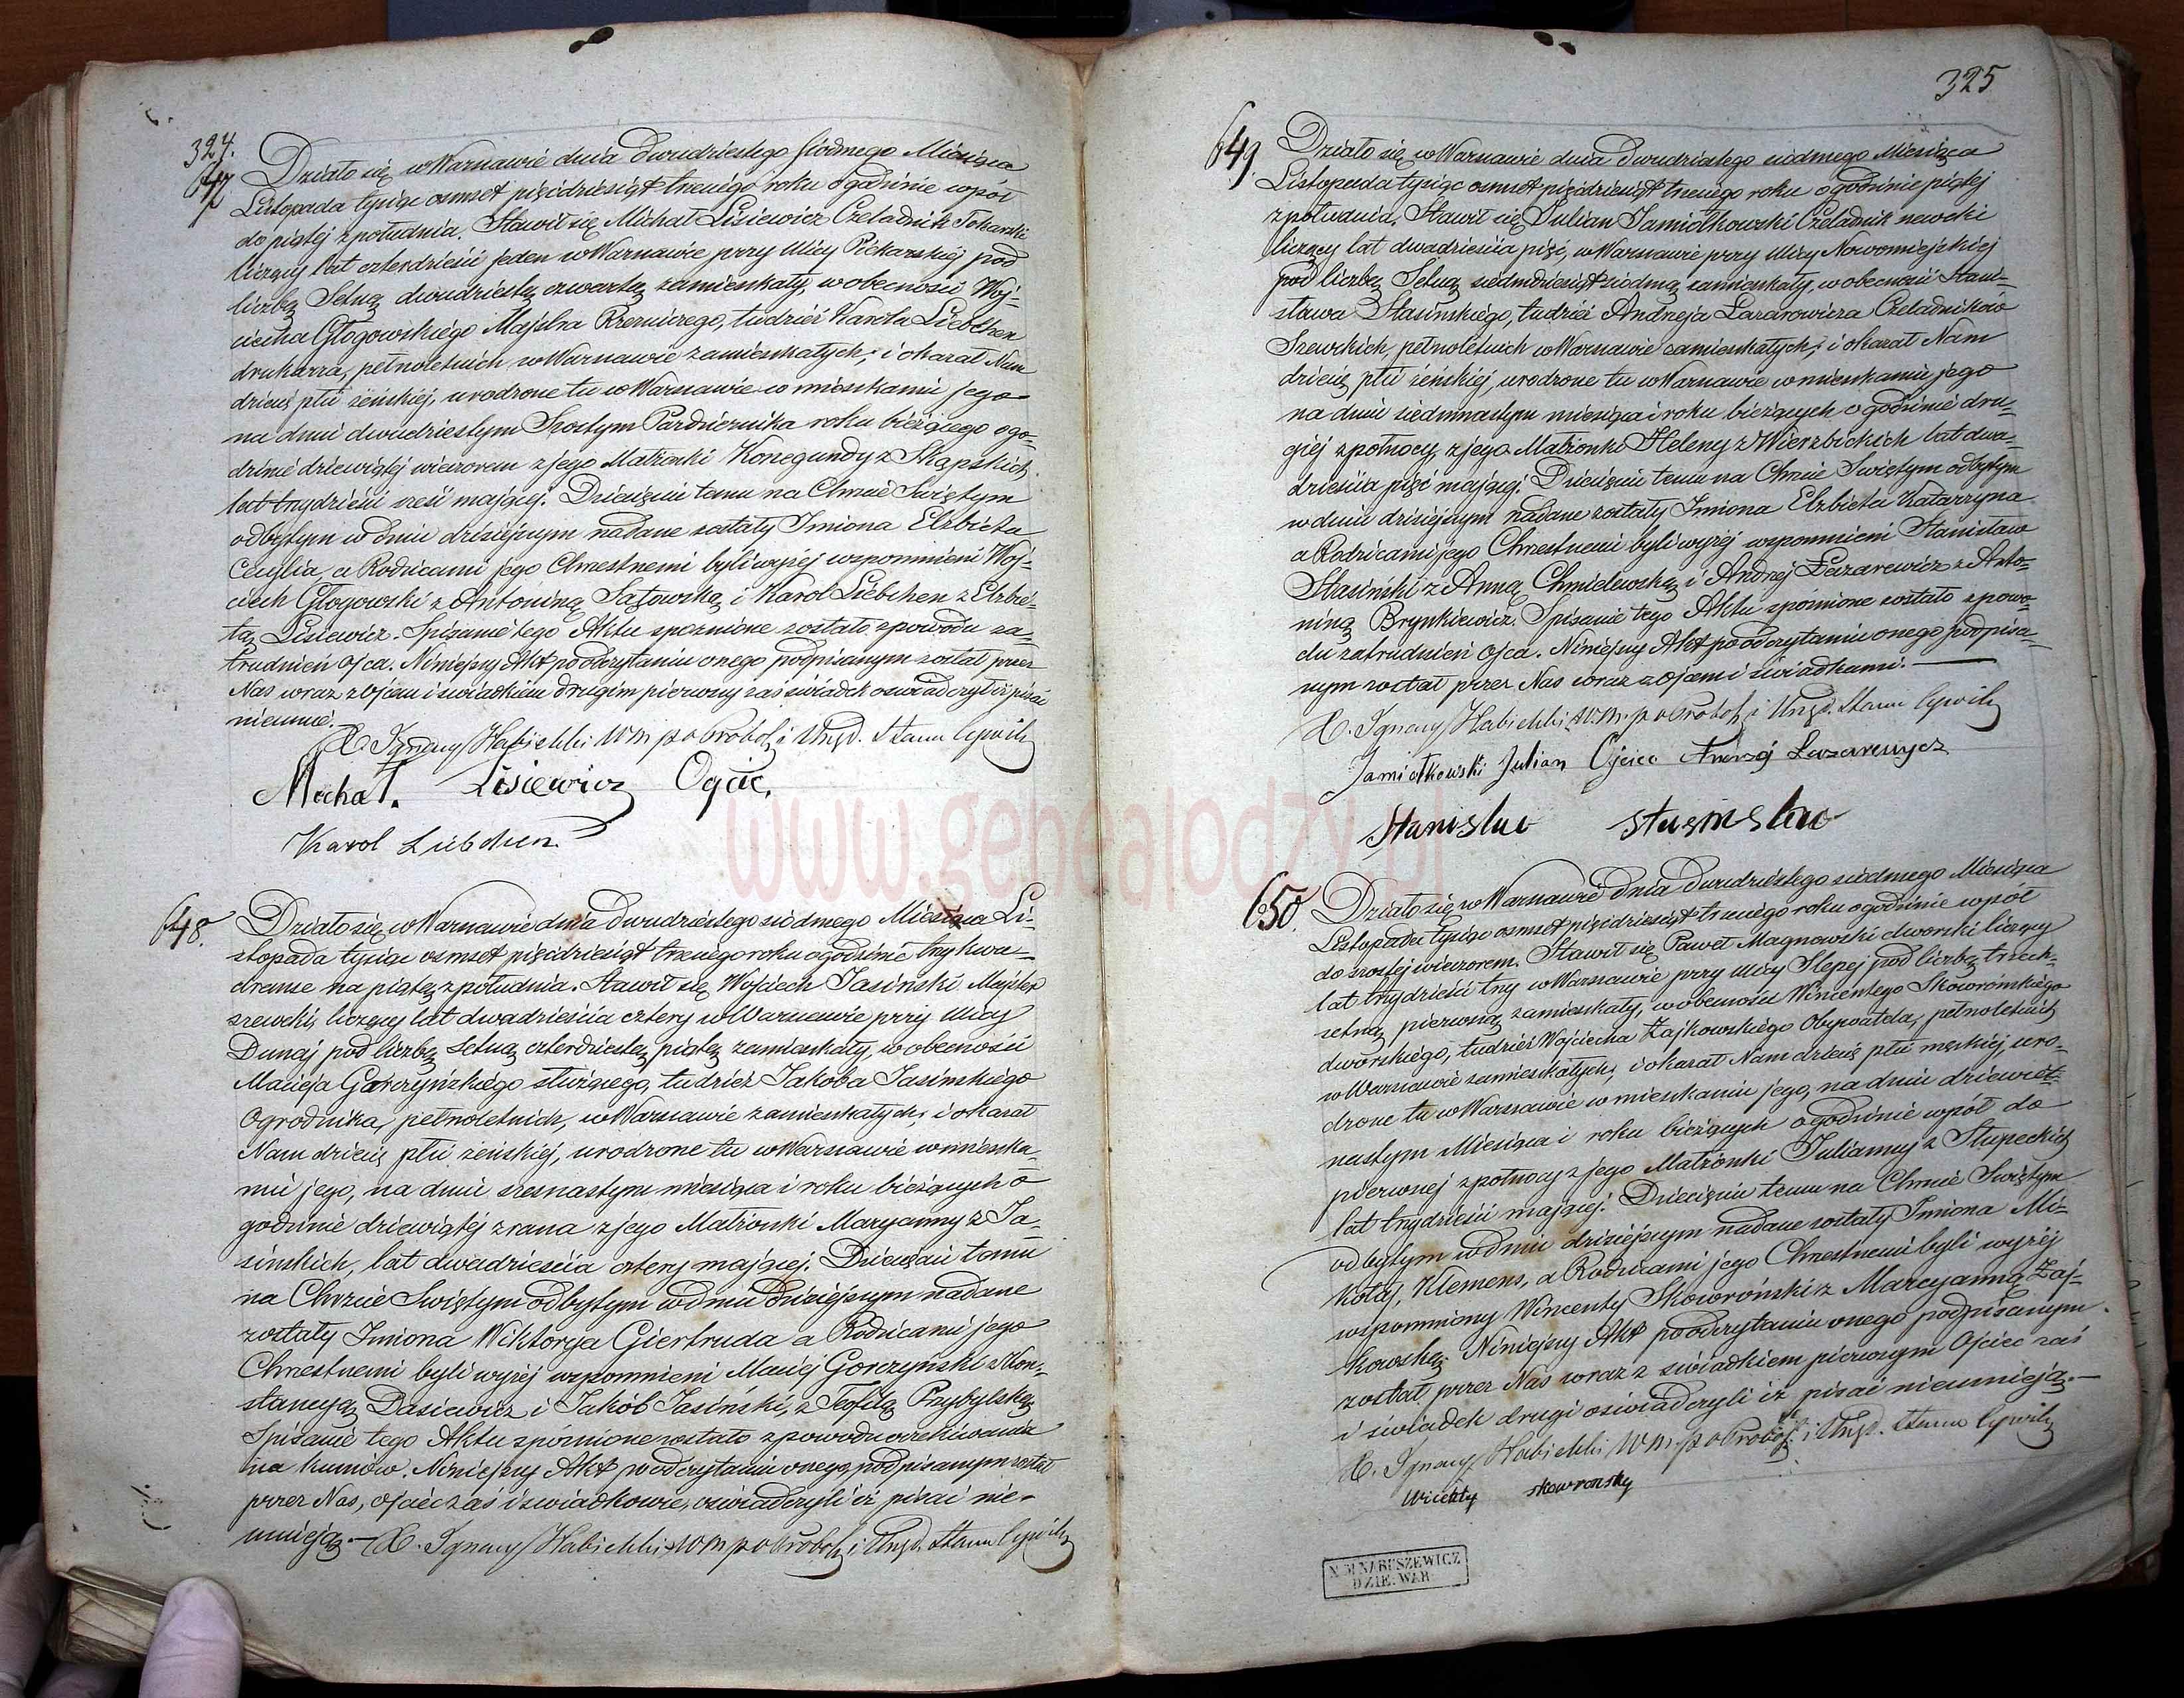 324.
647
Działo się w Warszawie dnia dwudziestego siódmego Miesiąca
Listopada tysiąc ośmset pięćdziesiąt trzeciego roku o godzinie wpół
do piątej z południa. Stawił się Michał Lisiewicz Czeladnik Tokarski
liczący lat czterdzieści jeden w Warszawie przy Ulicy Piekarskiej pod
liczbą Setną dwudziestą czwartą zamieszkały, w obecności Woj-
ciecha Głogowskiego Majstra Rzeźniczego, tudzież Karola Liebchen
drukarza, pełnoletnich w Warszawie zamieszkałych; i okazał Nam
dziecię płci żeńskiej, urodzone tu w Warszawie w mieszkaniu jego
na dniu dwudziestym szóstym Października roku bieżącego o go-
dzinie dziewiątej wieczorem z jego Małżonki Konegundy z Skąpskich,
lat trzydzieści sześć mającej. Dziecięciu temu na Chrzcie Świętym
odbytym w dniu dzisiejszym nadane zostały Imiona Elżbieta
Cecylia, a Rodzicami jego Chrzestnemi byli wyżej wspomnieni Woj-
ciech Głogowski z Antoniną i Karol Liebchen z Elżbie-
tą Lisiewicz. Spisanie tego Aktu spóźnione zostało z powodu za-
trudnień Ojca. Niniejszy Akt po odczytaniu onego podpisanym został przez
Nas wraz z Ojcem i świadkiem drugim pierwszy zaś świadek oświadczył iż pisać
nieumie.
X. Ignacy Habichhi i Urzęd. Stanu Cywiln
Michał. Lisiewicz Ojciec.
Karol Liebchen
648.
Działo się w Warszawie dnia dwudziestego siódmego Miesiąca Li-
stopada tysiąc ośmset pięćdziesiąt trzeciego roku o godzinie trzy kwa-
dranse na piątą z południa. Stawił się Wojciech Jasiński Majster
szewcki, liczący lat dwadzieścia cztery w Warszawie przy Ulicy
Dunaj pod liczbą Setną czterdziestą piątą zamieszkały, w obecności
Macieja Gorczyńskiego służącego, tudzież Jakóba Jasińskiego
Ogrodnika, pełnoletnich, w Warszawie zamieszkałych; i okazał
Nam dziecię płci żeńskiej, urodzone tu w Warszawie w mieszka-
niu jego, na dniu szesnastym miesiąca i roku bieżących o
godzinie dziewiątej z rana z jego Małżonki Maryanny z Ja-
sińskich, lat dwadzieścia cztery mającej. Dziecięciu temu
na Chrzcie Świętym odbytym w dniu dzisiejszym nadane
zostały Imiona Wiktorya Giertruda a Rodzicami jego
Chrzestnemi byli wyżej wspomnieni Maciej Gorczyński z Kon-
stancyą Dasiewicz i Jakób Jasiński, z Teofilą Przybylską.
Spisanie tego Aktu spóźnione zostało z powodu oczekiwania
na kumów. Niniejszy Akt po odczytaniu onego podpisanym został
przez Nas, ojciec zaś i świadkowie, oświadczyli iż pisać nie-
umieją. — X. Ignacy Habichhi i Urzęd. Stanu Cywiln
325
649.
Działo się w Warszawie dnia dwudziestego siódmego Miesiąca
Listopada tysiąc ośmset pięćdziesiąt trzeciego roku o godzinie piątej
z południa. Stawił się Julian Jamiołkowski Czeladnik szewcki
liczący lat dwadzieścia pięć, w Warszawie przy Ulicy Nowomiejskiej
pod liczbą Setną siedmdziesiąt siódmą zamieszkały, w obecności Stani-
sława Stasińskiego, tudzież Andrzeja Lazarowicza Czeladników
Szewckich, pełnoletnich w Warszawie zamieszkałych; i okazał Nam
dziecię płci żeńskiej, urodzone tu w Warszawie w mieszkaniu jego
na dniu siedmnastym miesiąca i roku bieżących o godzinie dru-
giej z północy, z jego Małżonki Heleny z Wierzbickich lat dwa-
dzieścia pięć mającej. Dziecięciu temu na Chrzcie Świętym odbytym
w dniu dzisiejszym nadane zostały Imiona Elżbieta Katarzyna
a Rodzicami jego Chrzestnemi byli wyżej wspomnieni Stanisław
Stasiński z Anną Chmielewską i Andrzej Lazarewicz z Anto-
niną Brynkiewicz. Spisanie tego Aktu spóźnione zostało z powo-
du zatrudnień Ojca. Niniejszy Akt po odczytaniu onego podpisa-
nym został przez Nas wraz z Ojcem i świadkami. —
X. Ignacy Habichhi i Urzęd. Stanu Cywiln
Jamiołkowski Julian Ojciec Andrzej Lazarewycz
Stanislaw
650.
Działo się w Warszawie dnia dwudziestego siódmego Miesiąca
Listopada tysiąc ośmset pięćdziesiąt trzeciego roku o godzinie wpół
do szóstej wieczorem. Stawił się Paweł Magnowski dworski liczący
lat trzydzieści trzy w Warszawie przy Ulicy Ślepej pod liczbą trzech-
setną pierwszą zamieszkały, w obecności Wincentego Skowrońskiego
dworskiego, tudzież Wojciecha Zajkowskiego Obywatela, pełnoletnich
w Warszawie zamieszkałych; i okazał Nam dziecię płci męskiej, uro-
dzone tu w Warszawie w mieszkaniu jego, na dniu dziewięt-
nastym Miesiąca i roku bieżących o godzinie wpół do
pierwszej z północy z jego Małżonki Julianny z Słupeckich
lat trzydzieści mającej. Dziecięciu temu na Chrzcie Świętym
odbytym w dniu dzisiejszym nadane zostały Imiona Mi-
kołaj, Klemens, a Rodzicami jego Chrzestnemi byli wyżej
wspomniony Wincenty Skowroński z Marcyanną Zaj-
kowską. Niniejszy Akt po odczytaniu onego podpisanym
został przez Nas wraz z świadkiem pierwszym Ojciec zaś
i świadek drugi oświadczyli iż pisać nieumieją. —
X. Ignacy Habichhi i Urzęd. Stanu Cywiln
skowronsky
N. M NARUSZEWICZ
DZIE. WAR
www.genealodzy.pl